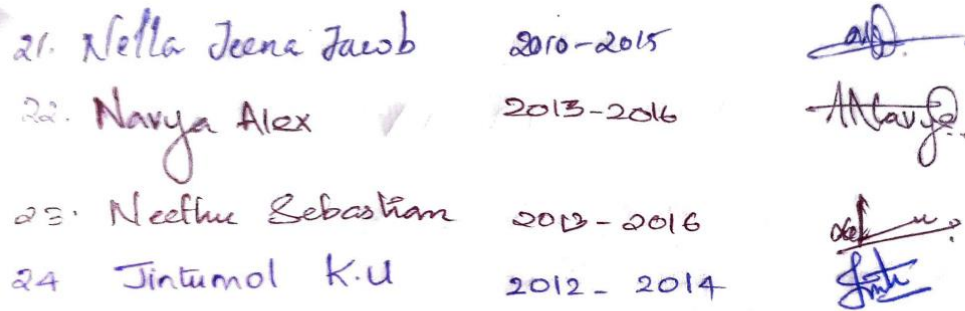 21. Nella Jeena Jacob 2010-2015
22. Navya Alex 2013-2016 ANavya
23. Neethu Sebastian 2013-2016
24 Jintumol K.U 2012-2014